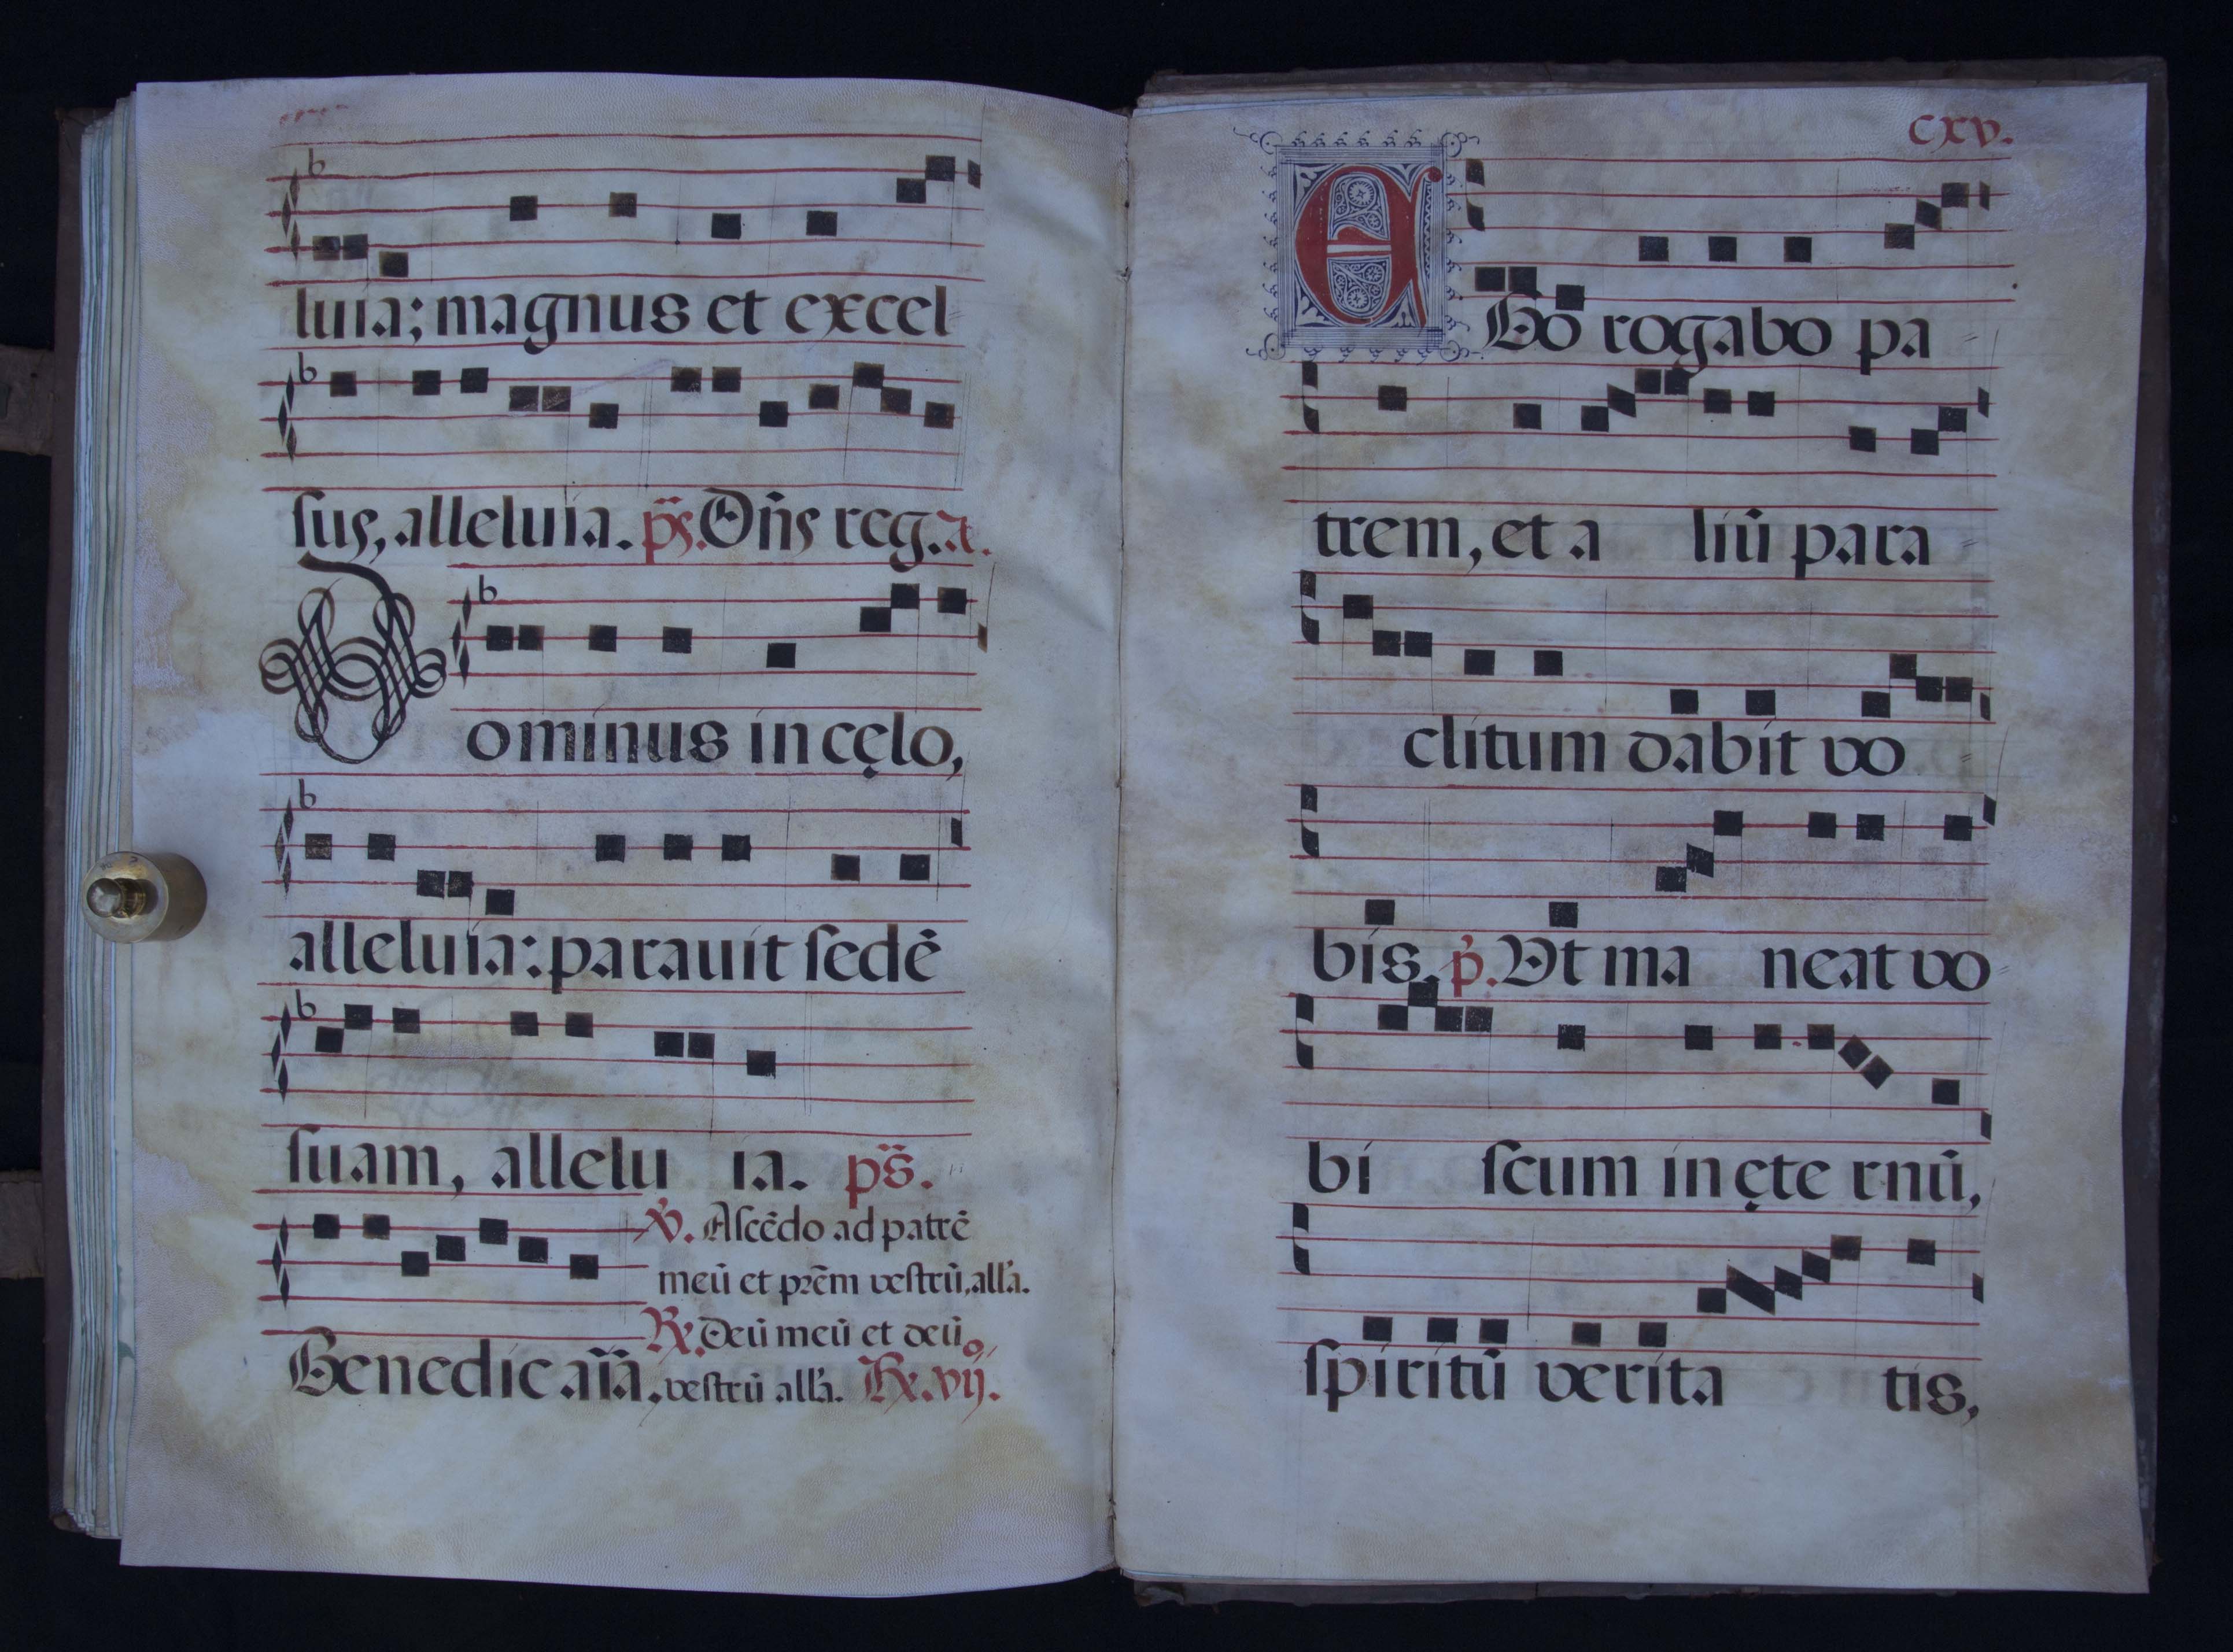 luia; magnus et excel
ſus, alleluia. ps̃. Dñs reg. a.
Dominus in cęlo,
alleluia: parauit ſedē
ſuam, allelu ia. ps̃.
Benedic aĩa.
℣. Aſcēdo ad patrē
meū et prēm veſtrū, all'a.
℟. Deū meū et deū
veſtrū all'a. ℟. vij.
cxv.
EGo rogabo pa
trem, et a liū para
clitum dabit vo
bis. p̄. Vt ma neat vo
bi ſcum in ęte rnū,
ſpiritū verita tis,